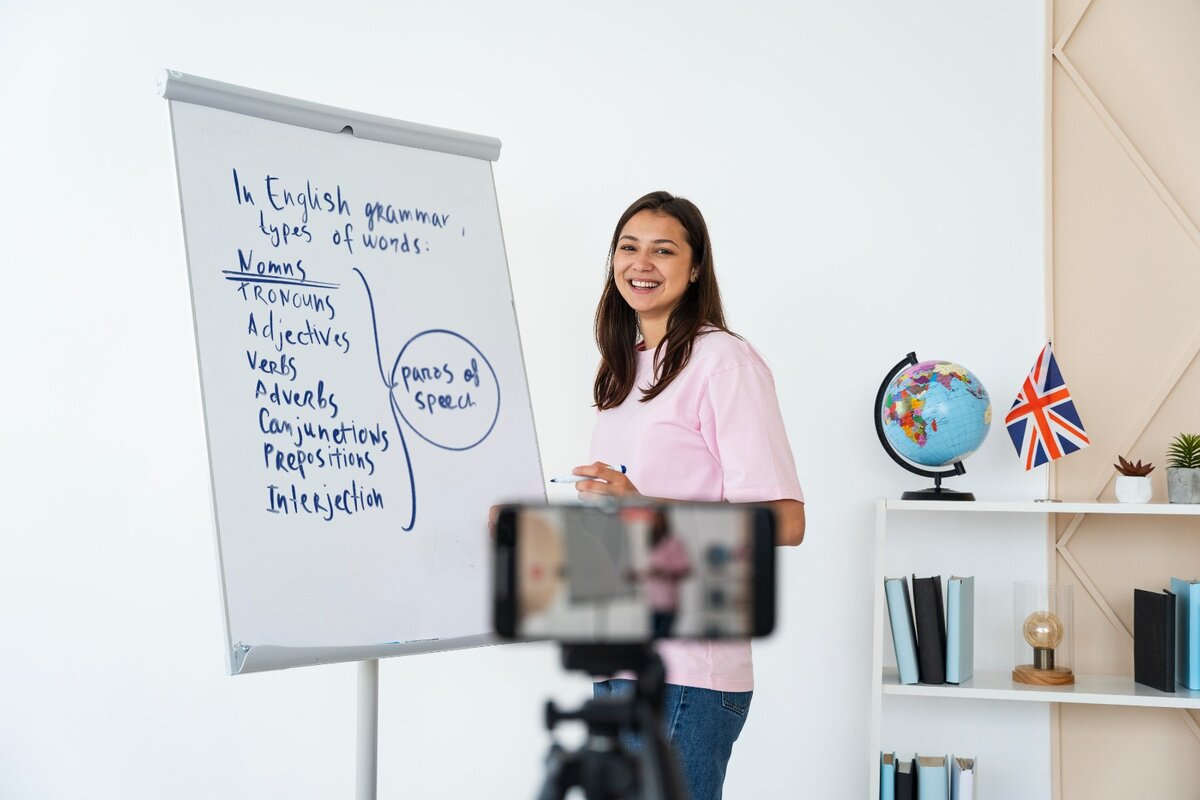 In English grammar,
types of words:
Nomns
Pronouns
Adjectives
Verbs
Adverbs
Conjunctions
Prepositions
Interjection
paros of
speech